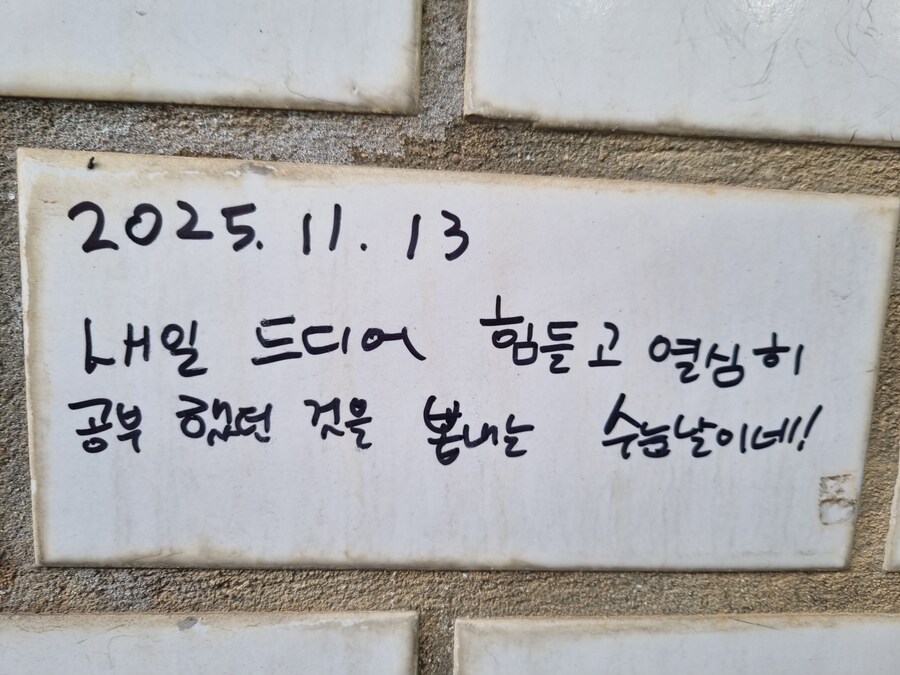 2025. 11. 13
내일 드디어 힘들고 열심히
공부 했던 것을 뽐내는 수능날이네!